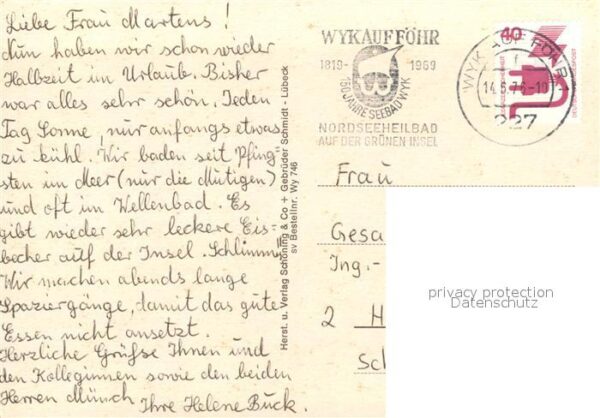 Liebe Frau Martens!
Nun haben wir schon wieder
Halbzeit im Urlaub. Bisher
war alles sehr schön. Jeden
Tag Sonne, nur anfangs etwas
zu kühl. Wir baden seit Pfing-
sten im Meer (nur die Mutigen)
und oft im Wellenbad. Es
gibt wieder sehr leckere Eis-
becher auf der Insel. Schlimm!
Wir machen abends lange
Spaziergänge, damit das gute
Essen nicht ansetzt.
Herzliche Grüße Ihnen und
den Kolleginnen sowie den beiden
Herren Münch
Ihre Helene Buck.
Herst. u. Verlag Schöning & Co + Gebrüder Schmidt - Lübeck
sv Bestellnr. Wy 746
WYK AUF FÖHR
1819- 1969
150 JAHRE SEEBAD WYK
NORDSEEHEILBAD
AUF DER GRÜNEN INSEL
WYK AUF FÖHR 1
14.6.76-10
227
40
DEUTSCHE BUNDESPOST
Frau
Gesa
Ing.-
2 H
Sch
privacy protection
Datenschutz